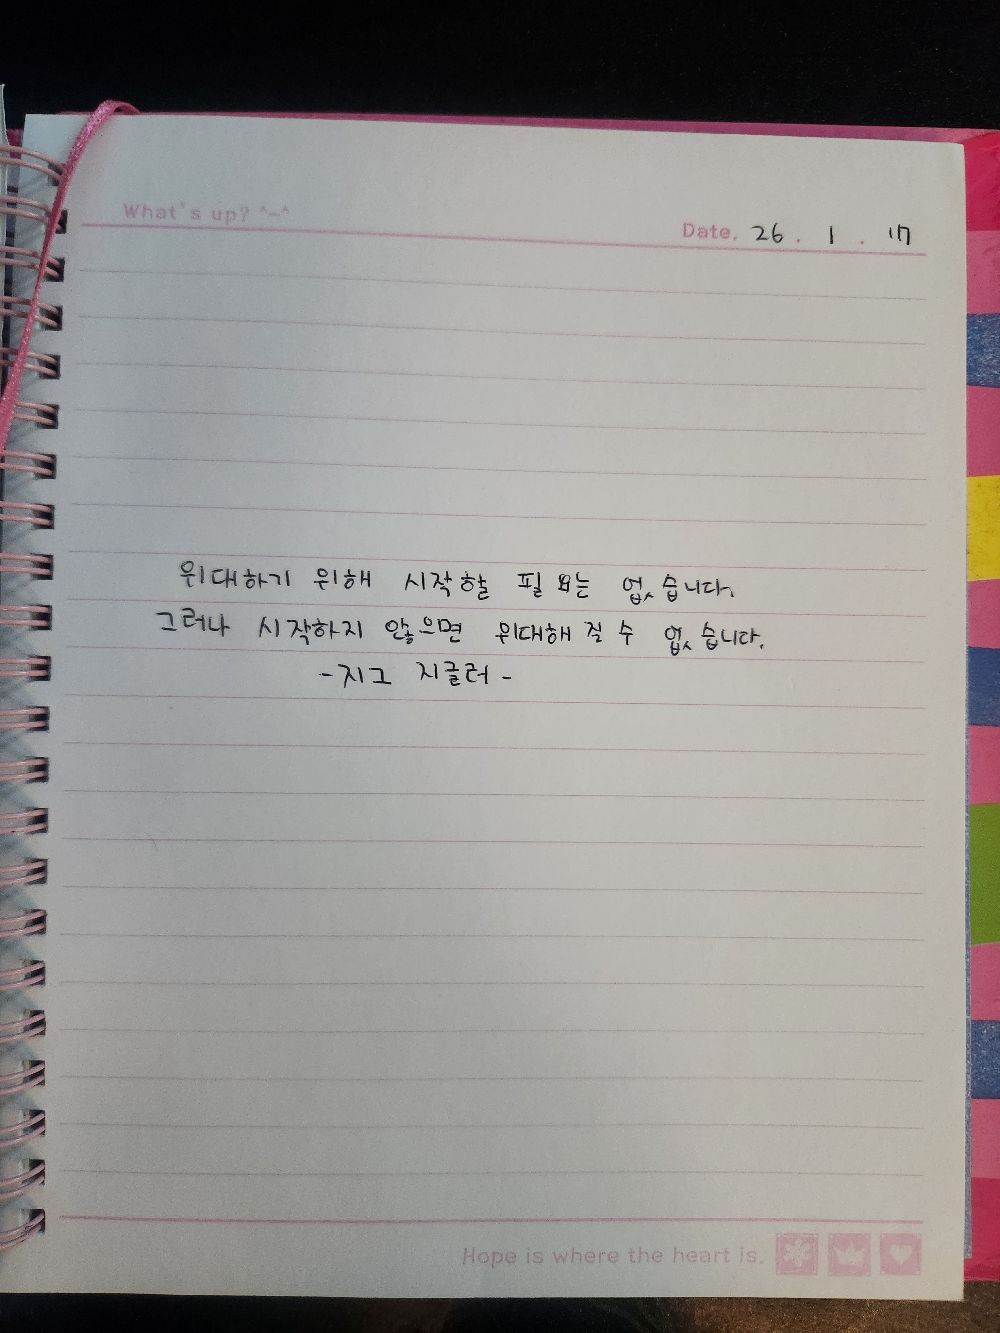 What's up? ^-^
Date. 26 . 1 . 17
위대하기 위해 시작할 필요는 없습니다.
그러나 시작하지 않으면 위대해 질 수 없습니다.
- 지그 지글러 -
Hope is where the heart is.